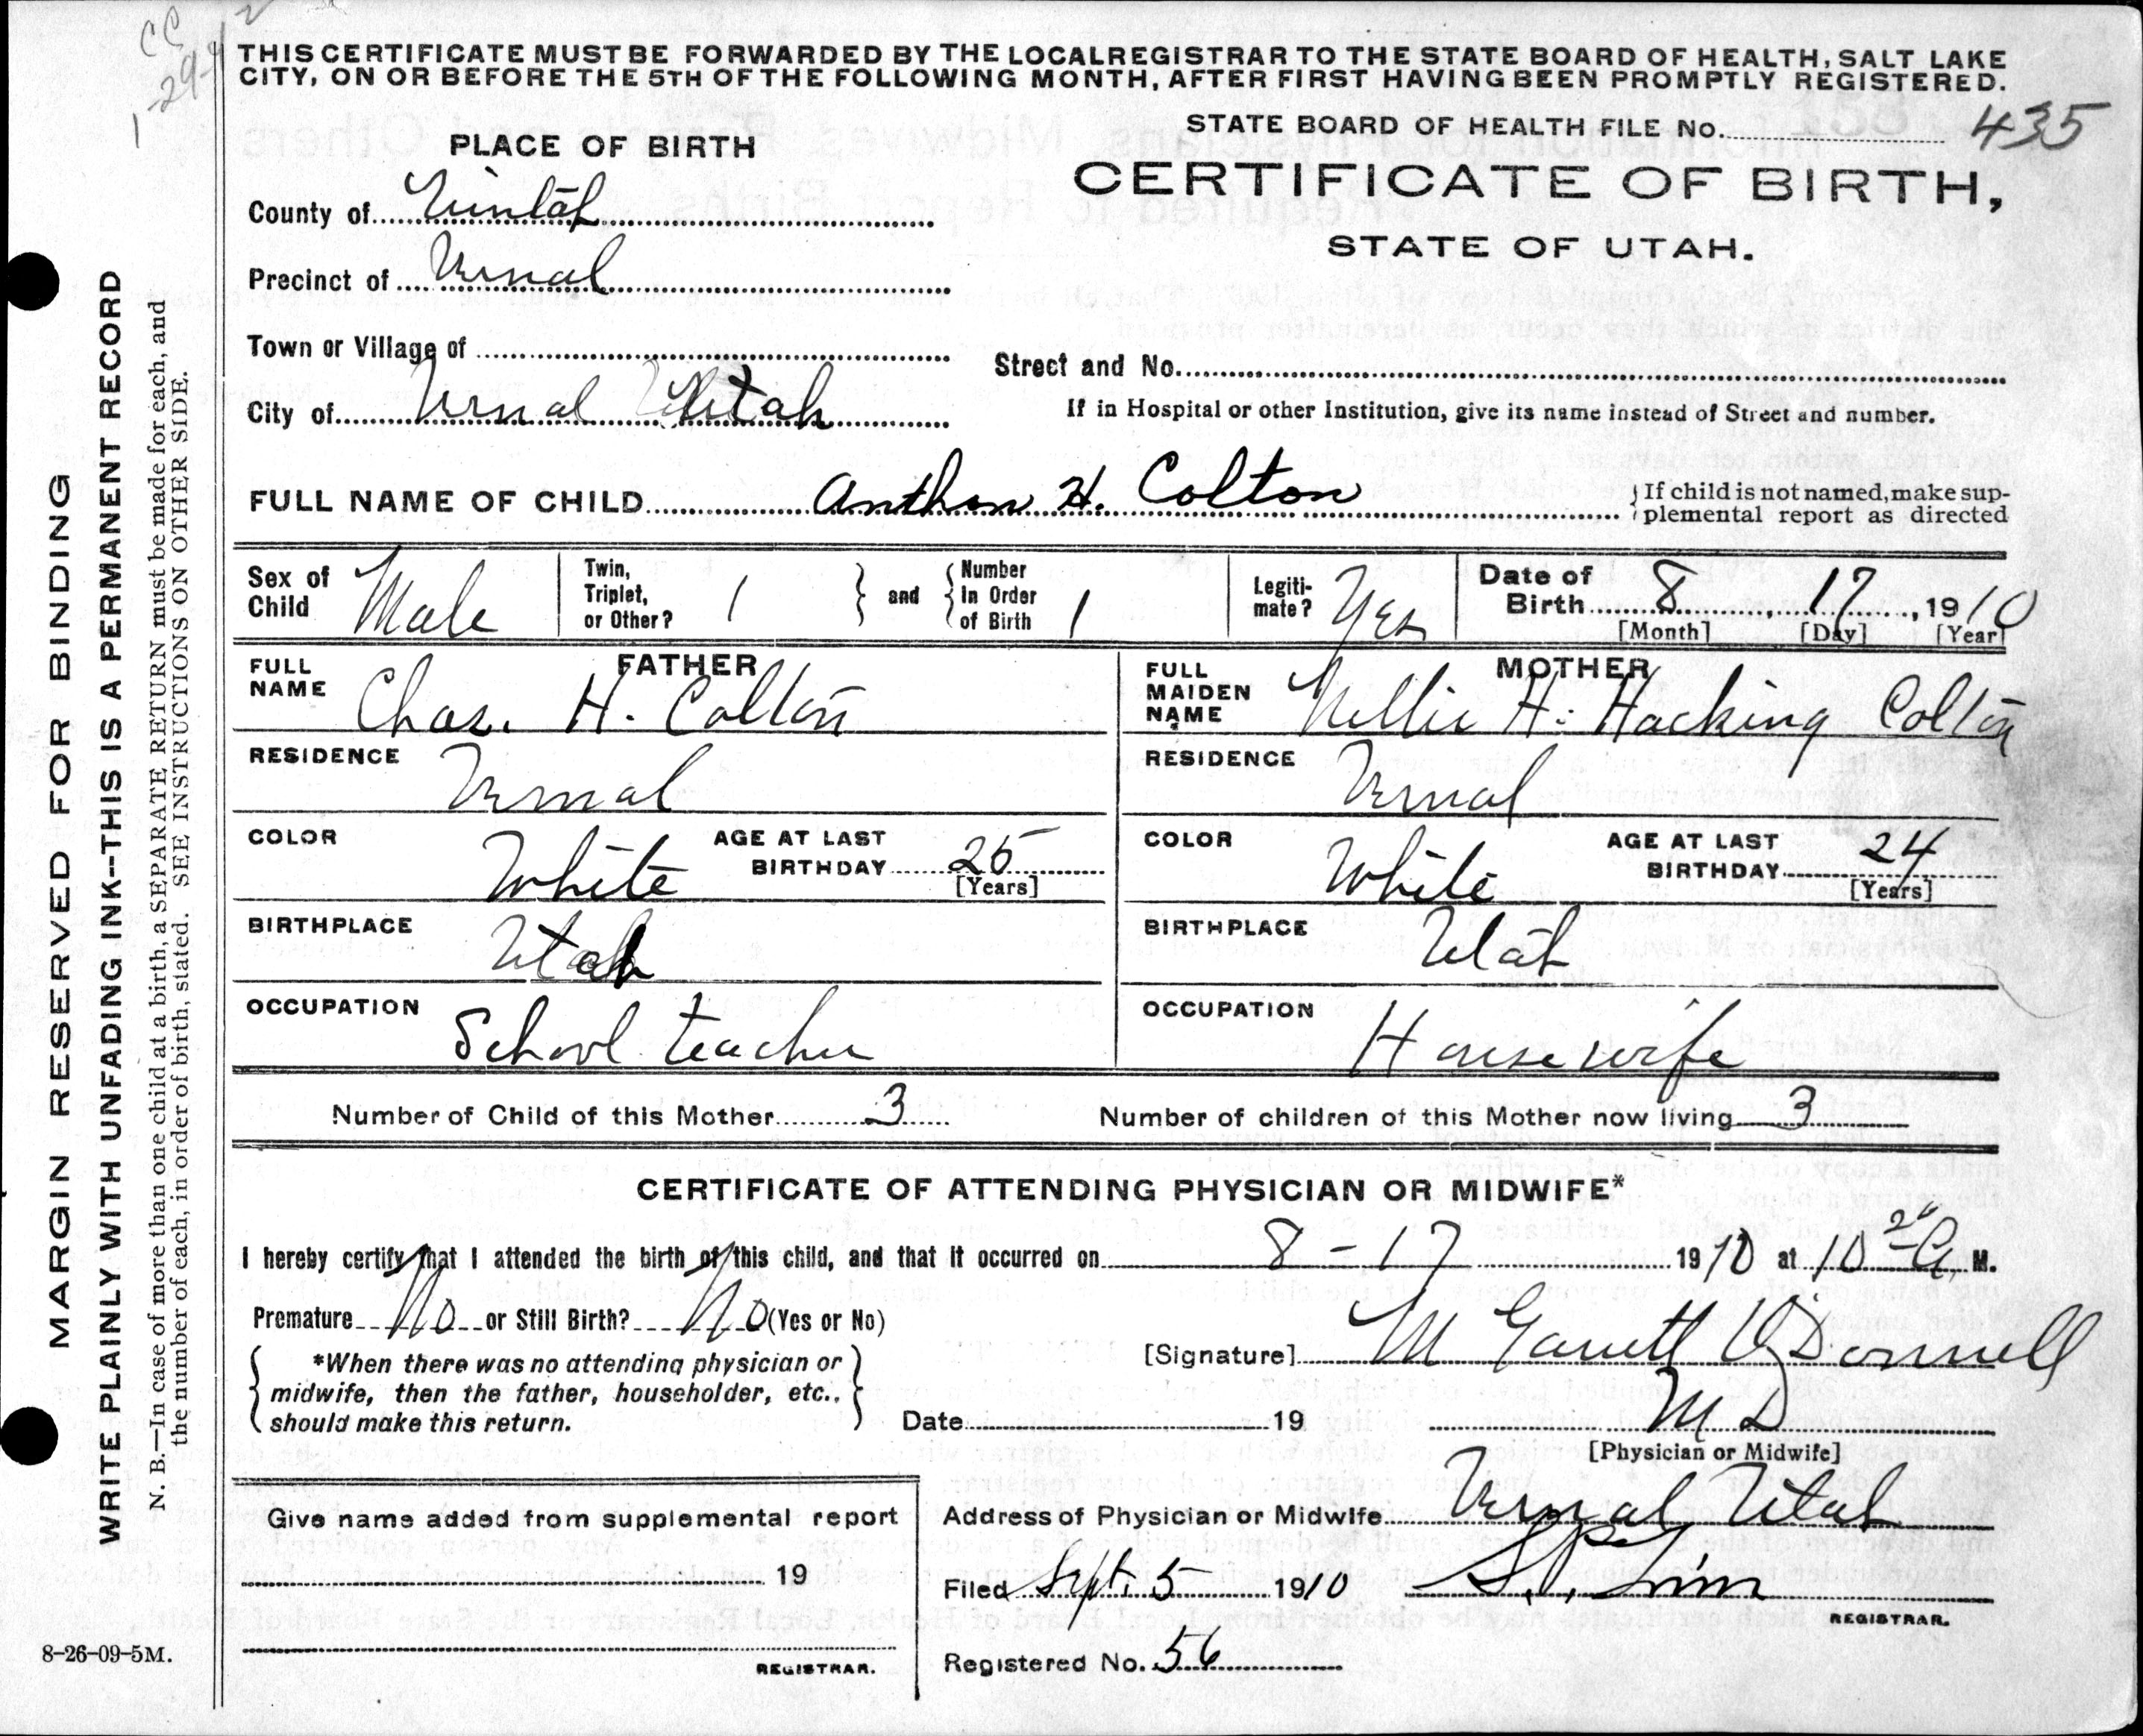 CC
1-29-42
THIS CERTIFICATE MUST BE FORWARDED BY THE LOCAL REGISTRAR TO THE STATE BOARD OF HEALTH, SALT LAKE
CITY, ON OR BEFORE THE 5TH OF THE FOLLOWING MONTH, AFTER FIRST HAVING BEEN PROMPTLY REGISTERED.
STATE BOARD OF HEALTH FILE No. 435
PLACE OF BIRTH
CERTIFICATE OF BIRTH,
STATE OF UTAH.
County of Uintah
Precinct of Vernal
Town or Village of
Street and No.
City of Vernal Utah
If in Hospital or other Institution, give its name instead of Street and number.
FULL NAME OF CHILD Anthon H. Colton
If child is not named, make sup-
plemental report as directed
Sex of Child Male
Twin, Triplet, or Other? 1
and
Number In Order of Birth 1
Legiti-mate? Yes
Date of Birth 8, 17, 1910
[Month] [Day] [Year]
FATHER
FULL NAME Chas. H. Colton
MOTHER
FULL MAIDEN NAME Nellie H. Hacking Colton
RESIDENCE Vernal
RESIDENCE Vernal
COLOR White AGE AT LAST BIRTHDAY 25 [Years]
COLOR White AGE AT LAST BIRTHDAY 24 [Years]
BIRTHPLACE Utah
BIRTHPLACE Utah
OCCUPATION School teacher
OCCUPATION Housewife
Number of Child of this Mother 3
Number of children of this Mother now living 3
CERTIFICATE OF ATTENDING PHYSICIAN OR MIDWIFE*
I hereby certify that I attended the birth of this child, and that it occurred on 8-17 1910 at 10 20 A. M.
Premature No or Still Birth? No (Yes or No)
*When there was no attending physician or
midwife, then the father, householder, etc.,
should make this return.
[Signature] M Garrett O'Donnell
M D
Date 19
[Physician or Midwife]
Give name added from supplemental report
19
REGISTRAR.
Address of Physician or Midwife Vernal Utah
Filed Sept. 5 1910
REGISTRAR.
Registered No. 56
MARGIN RESERVED FOR BINDING
WRITE PLAINLY WITH UNFADING INK--THIS IS A PERMANENT RECORD
N. B.—In case of more than one child at a birth, a SEPARATE RETURN must be made for each, and
the number of each, in order of birth, stated. SEE INSTRUCTIONS ON OTHER SIDE.
8-26-09-5M.